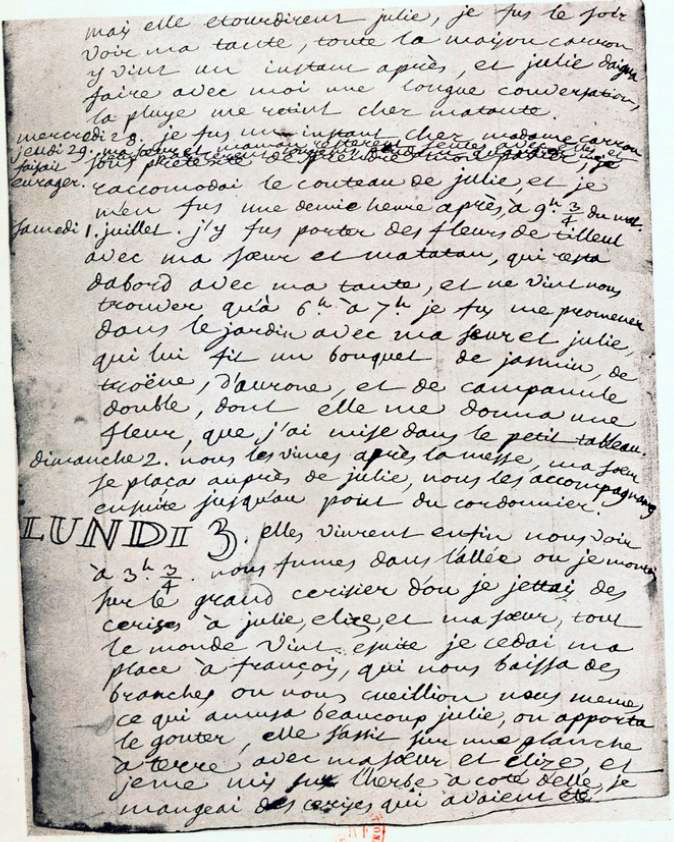 mais elle etourdirent julie, je fus le soir
voir ma tante, toute la maison carron
y vint un instant après, et julie daigna
faire avec moi une longue conversation,
la pluye me retint cher matante.
mercredi 28. je fus un instant cher madame carron
jeudi 29. ma sœur et maman resterent seules avec
faisait sous pretexte de prendre mon panier, je
enrager.
raccomodai le couteau de julie, et je
m'en fus une demie heure après, à 9h 3/4 du mat.
samedi 1. juillet. j'y fus porter des fleurs de tilleul
avec ma sœur et matatan, qui resta
dabord avec ma tante, et ne vint nous
trouver qu'à 6h à 7h je fus me promener
dans le jardin avec ma sœur et julie,
qui lui fit un bouquet de jasmin, de
troëne, d'aurone, et de campanule
double, dont elle me donna une
fleur, que j'ai mise dans le petit tableau.
dimanche 2. nous les vimes après la messe, ma sœur
se plaça auprès de julie, nous les accompagnames
ensuite jusqu'au pont du cordonnier.
LUNDI 3. elles vinrent enfin nous voir
à 3h 3/4. nous fumes dans l'allée ou je montai
sur le grand cerisier d'ou je jettai des
cerises à julie, elize, et ma sœur, tout
le monde vint. esuite je cedai ma
place à françois, qui nous baissa des
branches ou nous cueillion nous memes,
ce qui amusa beaucoup julie, on apporta
le gouter, elle s'assit sur une planche
à terre avec ma sœur et elize, et
jeme mis sur l'herbe à coté d'elle, je
mangeai des cerises qui avaient été